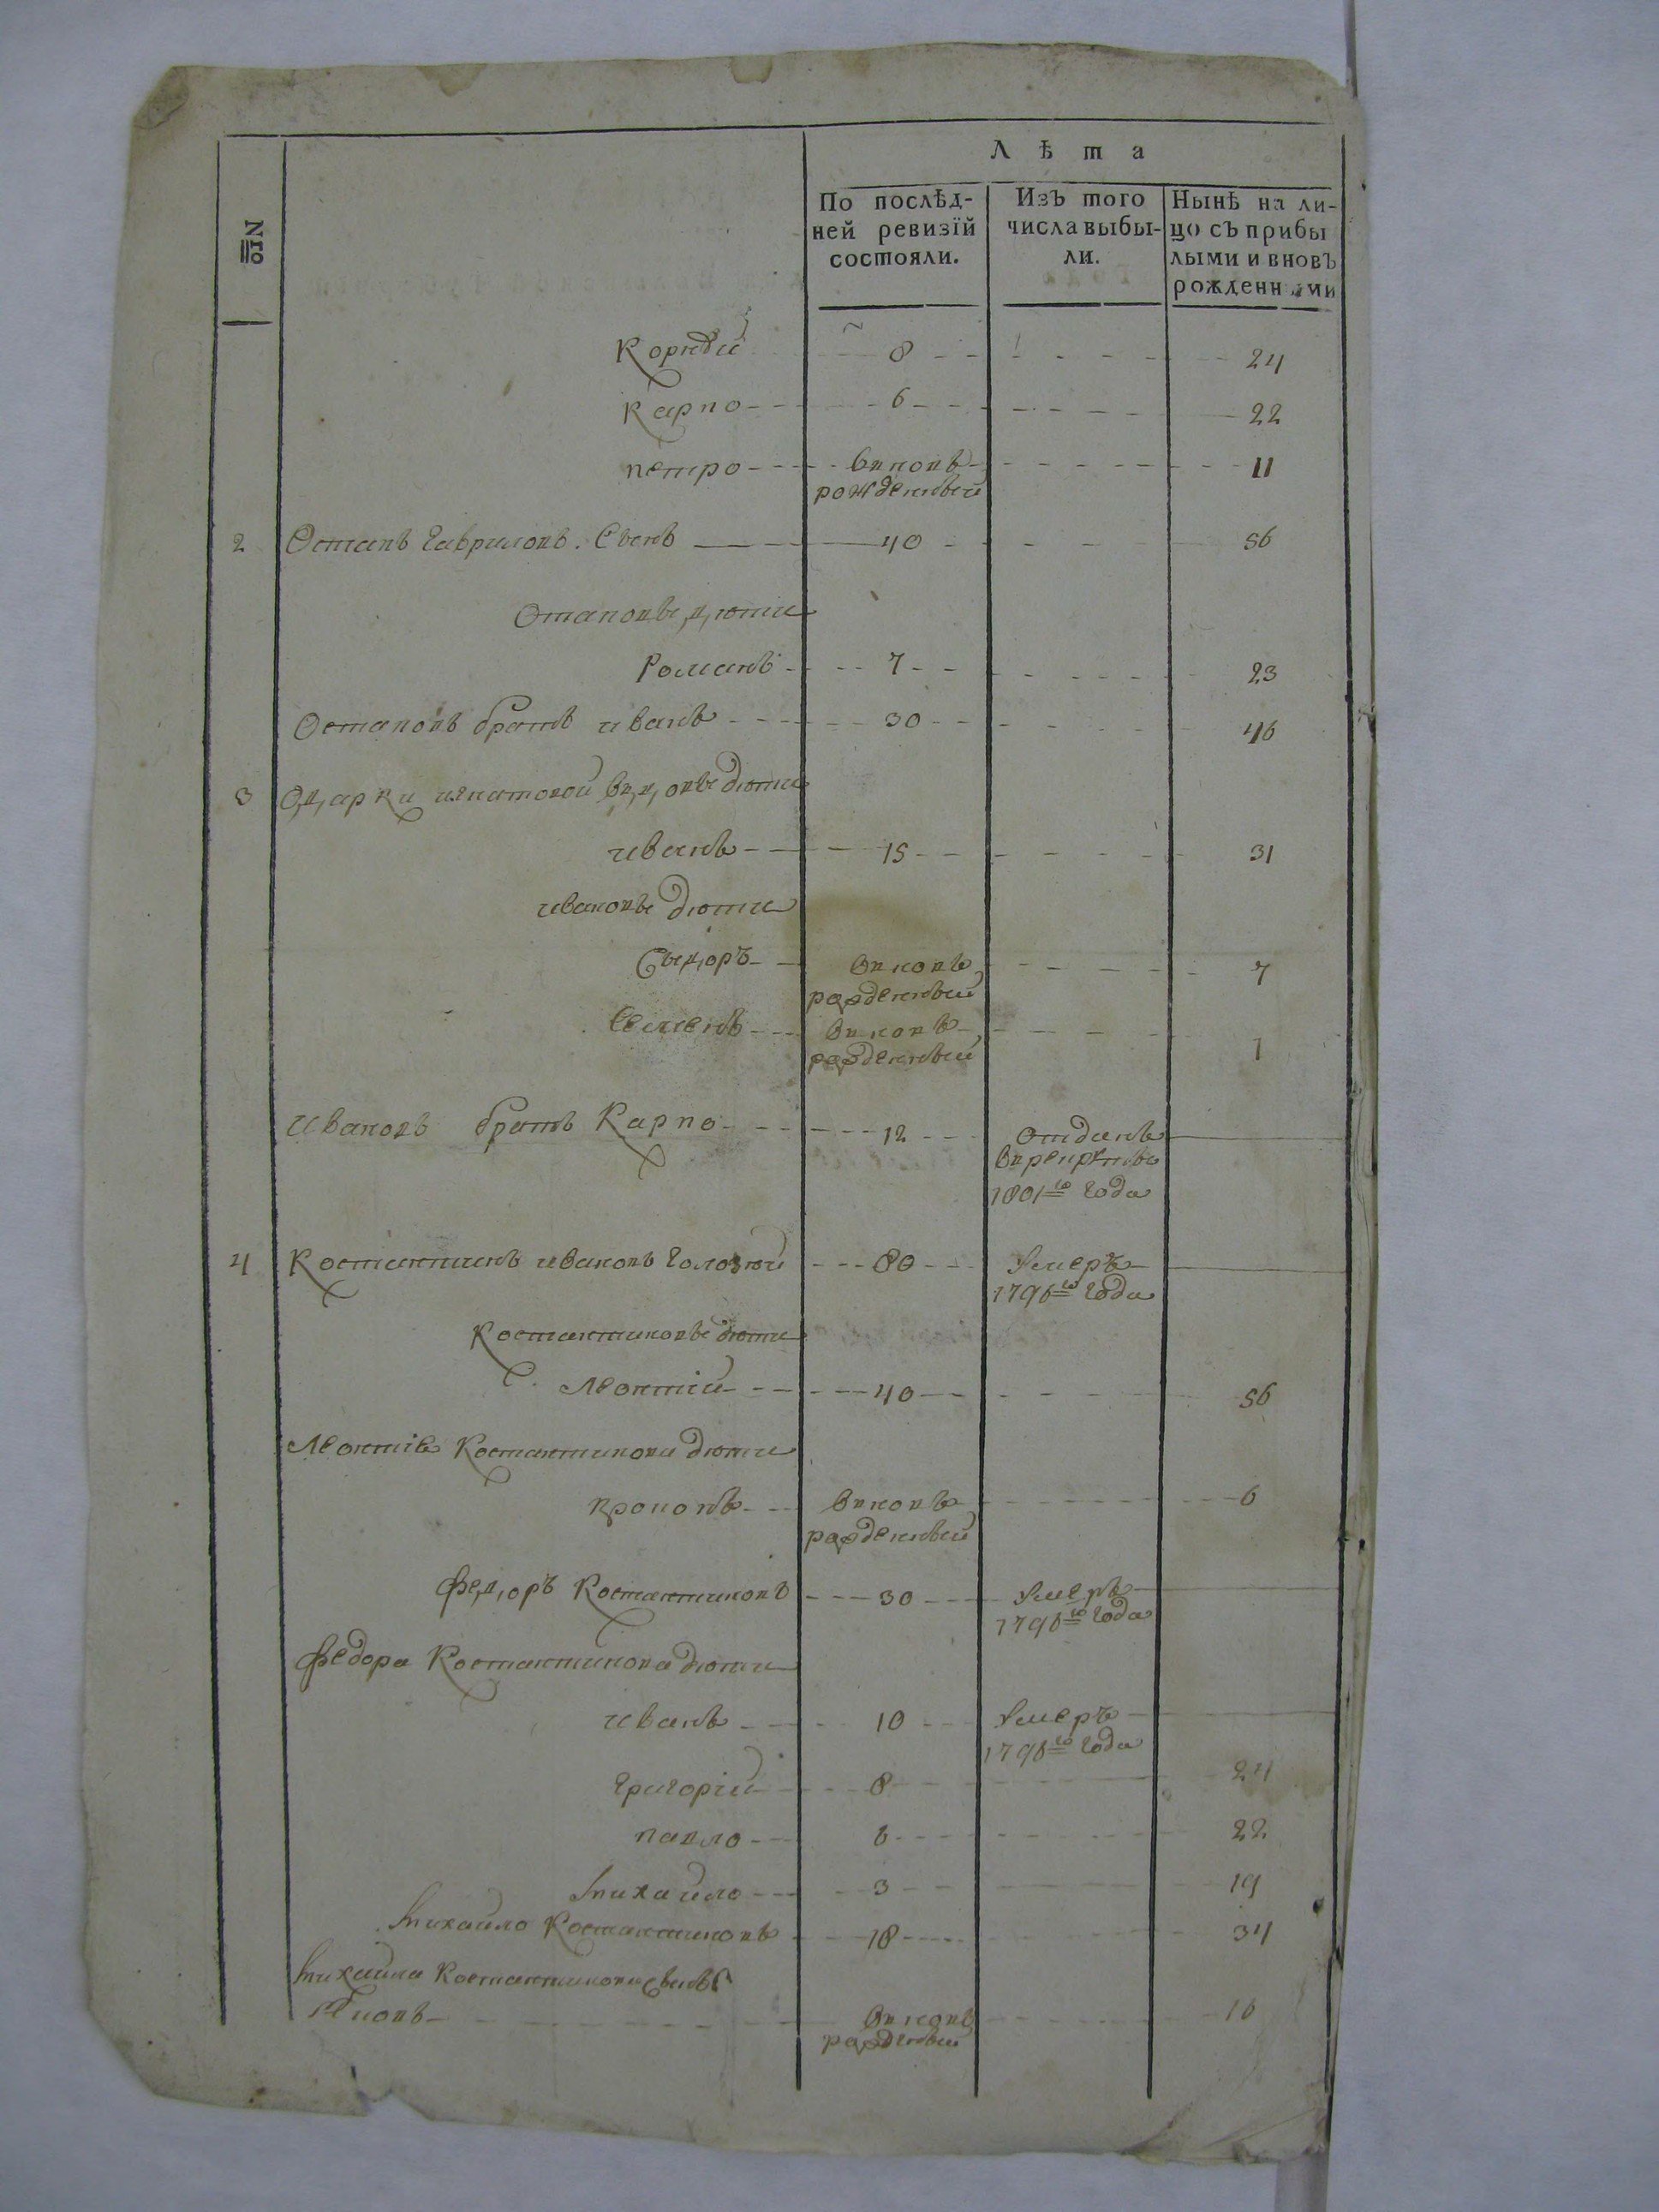 Nro
Лѣта
По послѣд-
ней ревизїй
состояли.
Изъ того
числа выбы-
ли.
Нынѣ на ли-
цо съ прибы
лыми и вновъ
рожденнами
Корнѣй 8 24
Карпо 6 22
петро вновъ 11
рожденный
2 Остапъ Гавриловъ. Сынъ 40 56
Отаповы дѣти
Романъ 7 23
Остаповъ братъ иванъ 30 46
3 Одарки игнатовой вдовы дѣти
иванъ 15 31
ивановы дѣти
Сыдоръ вновъ 7
рожденный
Семенъ вновъ 1
рожденный
Ивановъ братъ Карпо 12 отданъ
в рекруты
1801го года
4 Костантинъ ивановъ 80 Умеръ
1796го года
Костантиновы дѣти
Леонтій 40 56
Леонтія Костантинова дѣти
вновъ 6
рожденный
Федоръ Костантиновъ 30 Умеръ
1798го года
Федора Костантинова дѣти
иванъ 10 Умеръ
1798го года
Григорій 8 24
павло 6 22
михайло 3 19
михайло Костантиновъ 18 34
михайла Костантинова сынъ
вновъ 16
рожденный